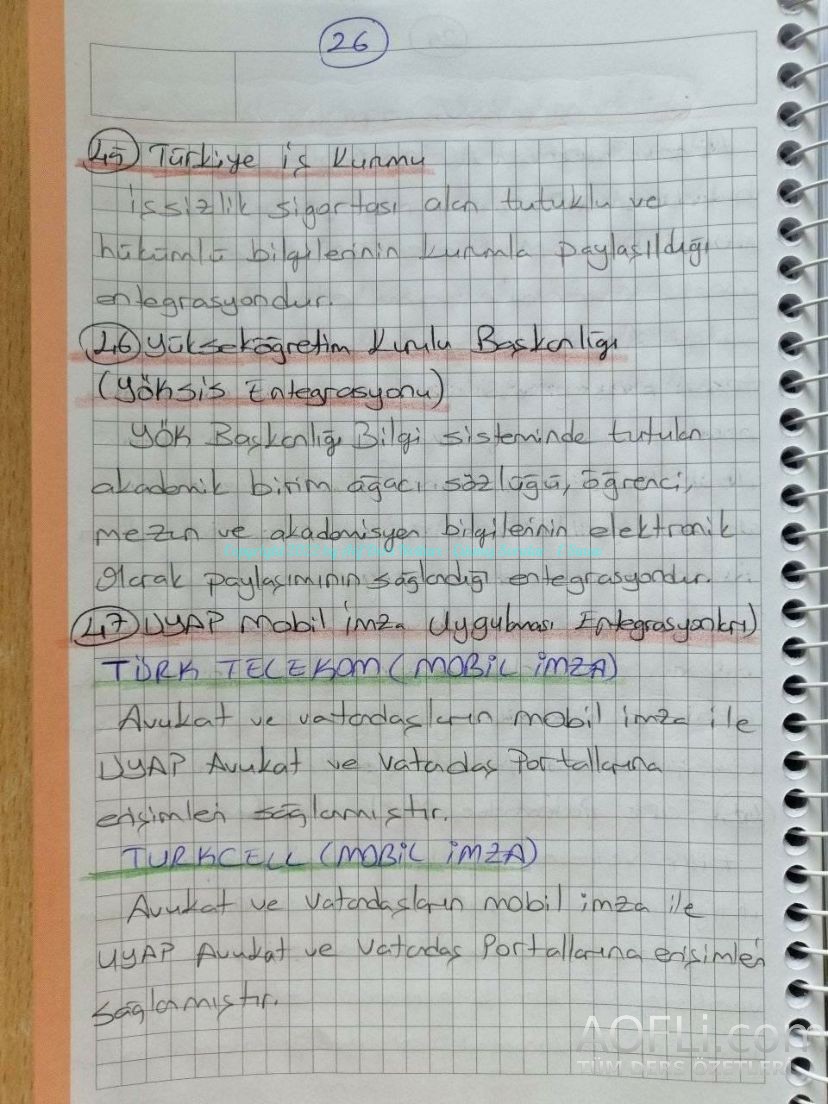 26
45) Türkiye iş Kurumu
işsizlik sigortası alan tutuklu ve
hükümlü bilgilerinin kurumla paylaşıldığı
entegrasyondur.
46) Yükseköğretim Kurulu Başkanlığı
(YÖKSİS Entegrasyonu)
YÖK Başkanlığı Bilgi sisteminde tutulan
akademik birim ağacı sözlüğü, öğrenci,
mezun ve akademisyen bilgilerinin elektronik
olarak paylaşımının sağlandığı entegrasyondur.
47) UYAP Mobil imza Uygulaması Entegrasyonları)
TÜRK TELEKOM (MOBİL İMZA)
Avukat ve vatandaşların mobil imza ile
UYAP Avukat ve Vatandaş Portallarına
erişimleri sağlanmıştır.
TURKCELL (MOBİL İMZA)
Avukat ve Vatandaşların mobil imza ile
UYAP Avukat ve Vatandaş Portallarına erişimleri
sağlanmıştır.
AOFLİ.com
TÜM DERS ÖZETLERİ